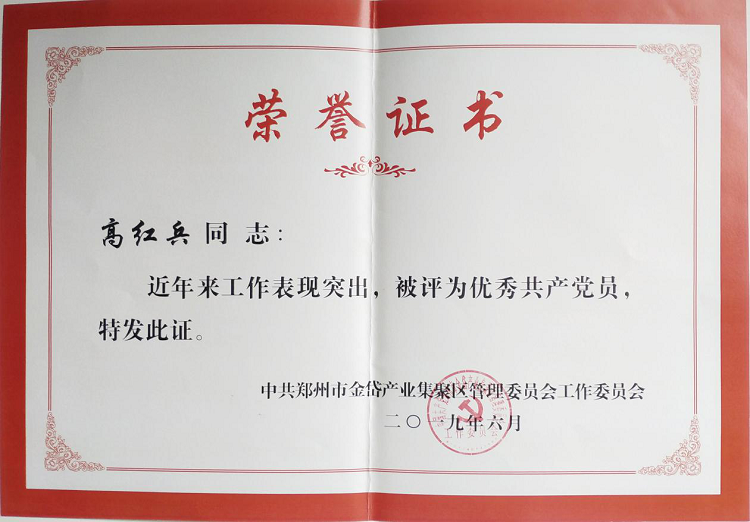 荣誉证书
高红兵同志：
近年来工作表现突出，被评为优秀共产党员，
特发此证。
中共郑州市金岱产业集聚区管理委员会工作委员会
二〇一九年六月
工作委员会